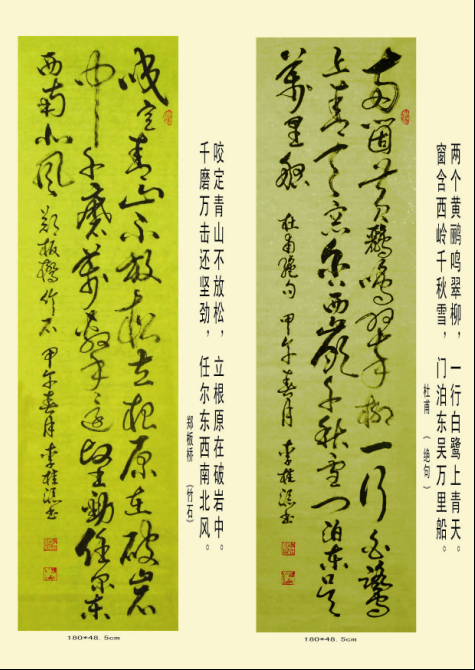 两个黄鹂鸣翠柳，一行白鹭上青天。
窗含西岭千秋雪，门泊东吴万里船。
杜甫（绝句）
两箇黄鹂鸣翠柳一行白鹭
上青天窗含西岭千秋雪门泊东吴
萬里船 杜甫绝句 甲午春月 李桂书
180*48.5cm
咬定青山不放松，立根原在破岩中。
千磨万击还坚劲，任尔东西南北风。
郑板桥（竹石）
咬定青山不放松立根原在破岩
中千磨萬击还坚劲任尔东
西南北风 郑板桥竹石 甲午春月 李桂书
180*48.5cm